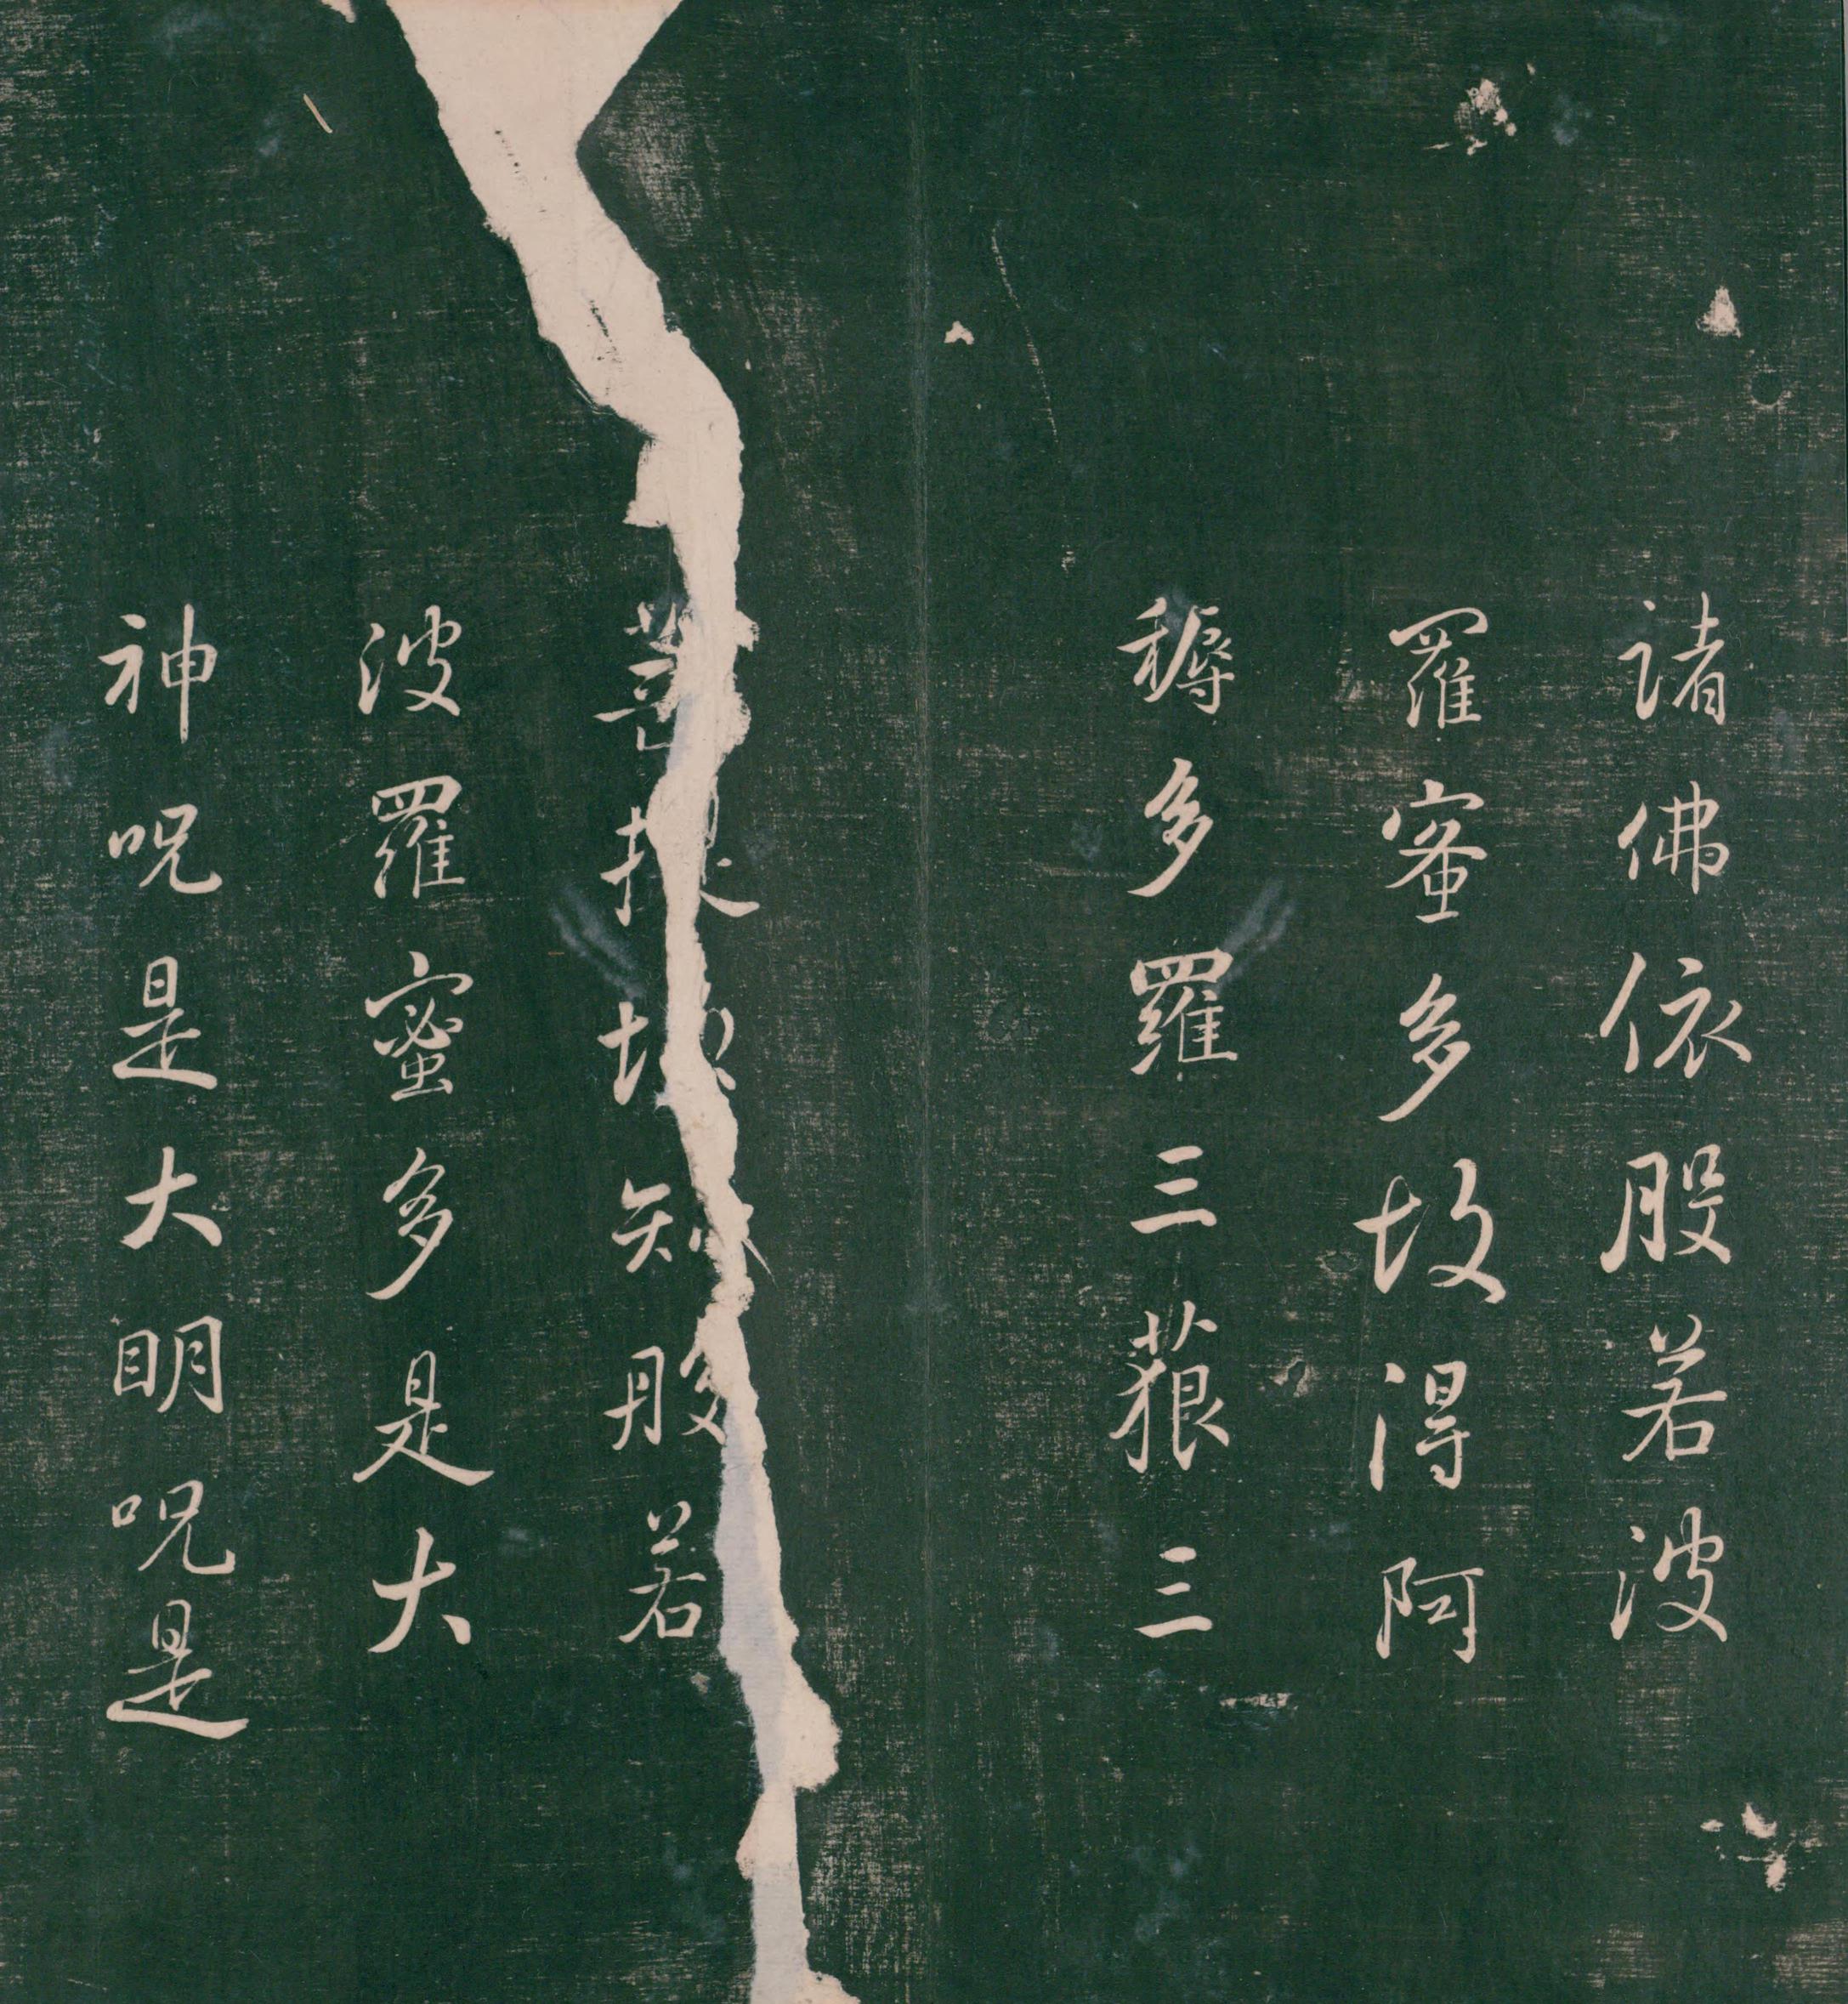 諸佛依般若波
羅蜜多故得阿
耨多羅三藐三
菩提故知般若
波羅蜜多是大
神呪是大明呪是